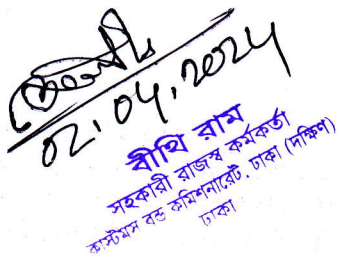 02.04.2024
বীথি রাম
সহকারী রাজস্ব কর্মকর্তা
কাস্টমস বন্ড কমিশনারেট, ঢাকা (দক্ষিণ)
ঢাকা